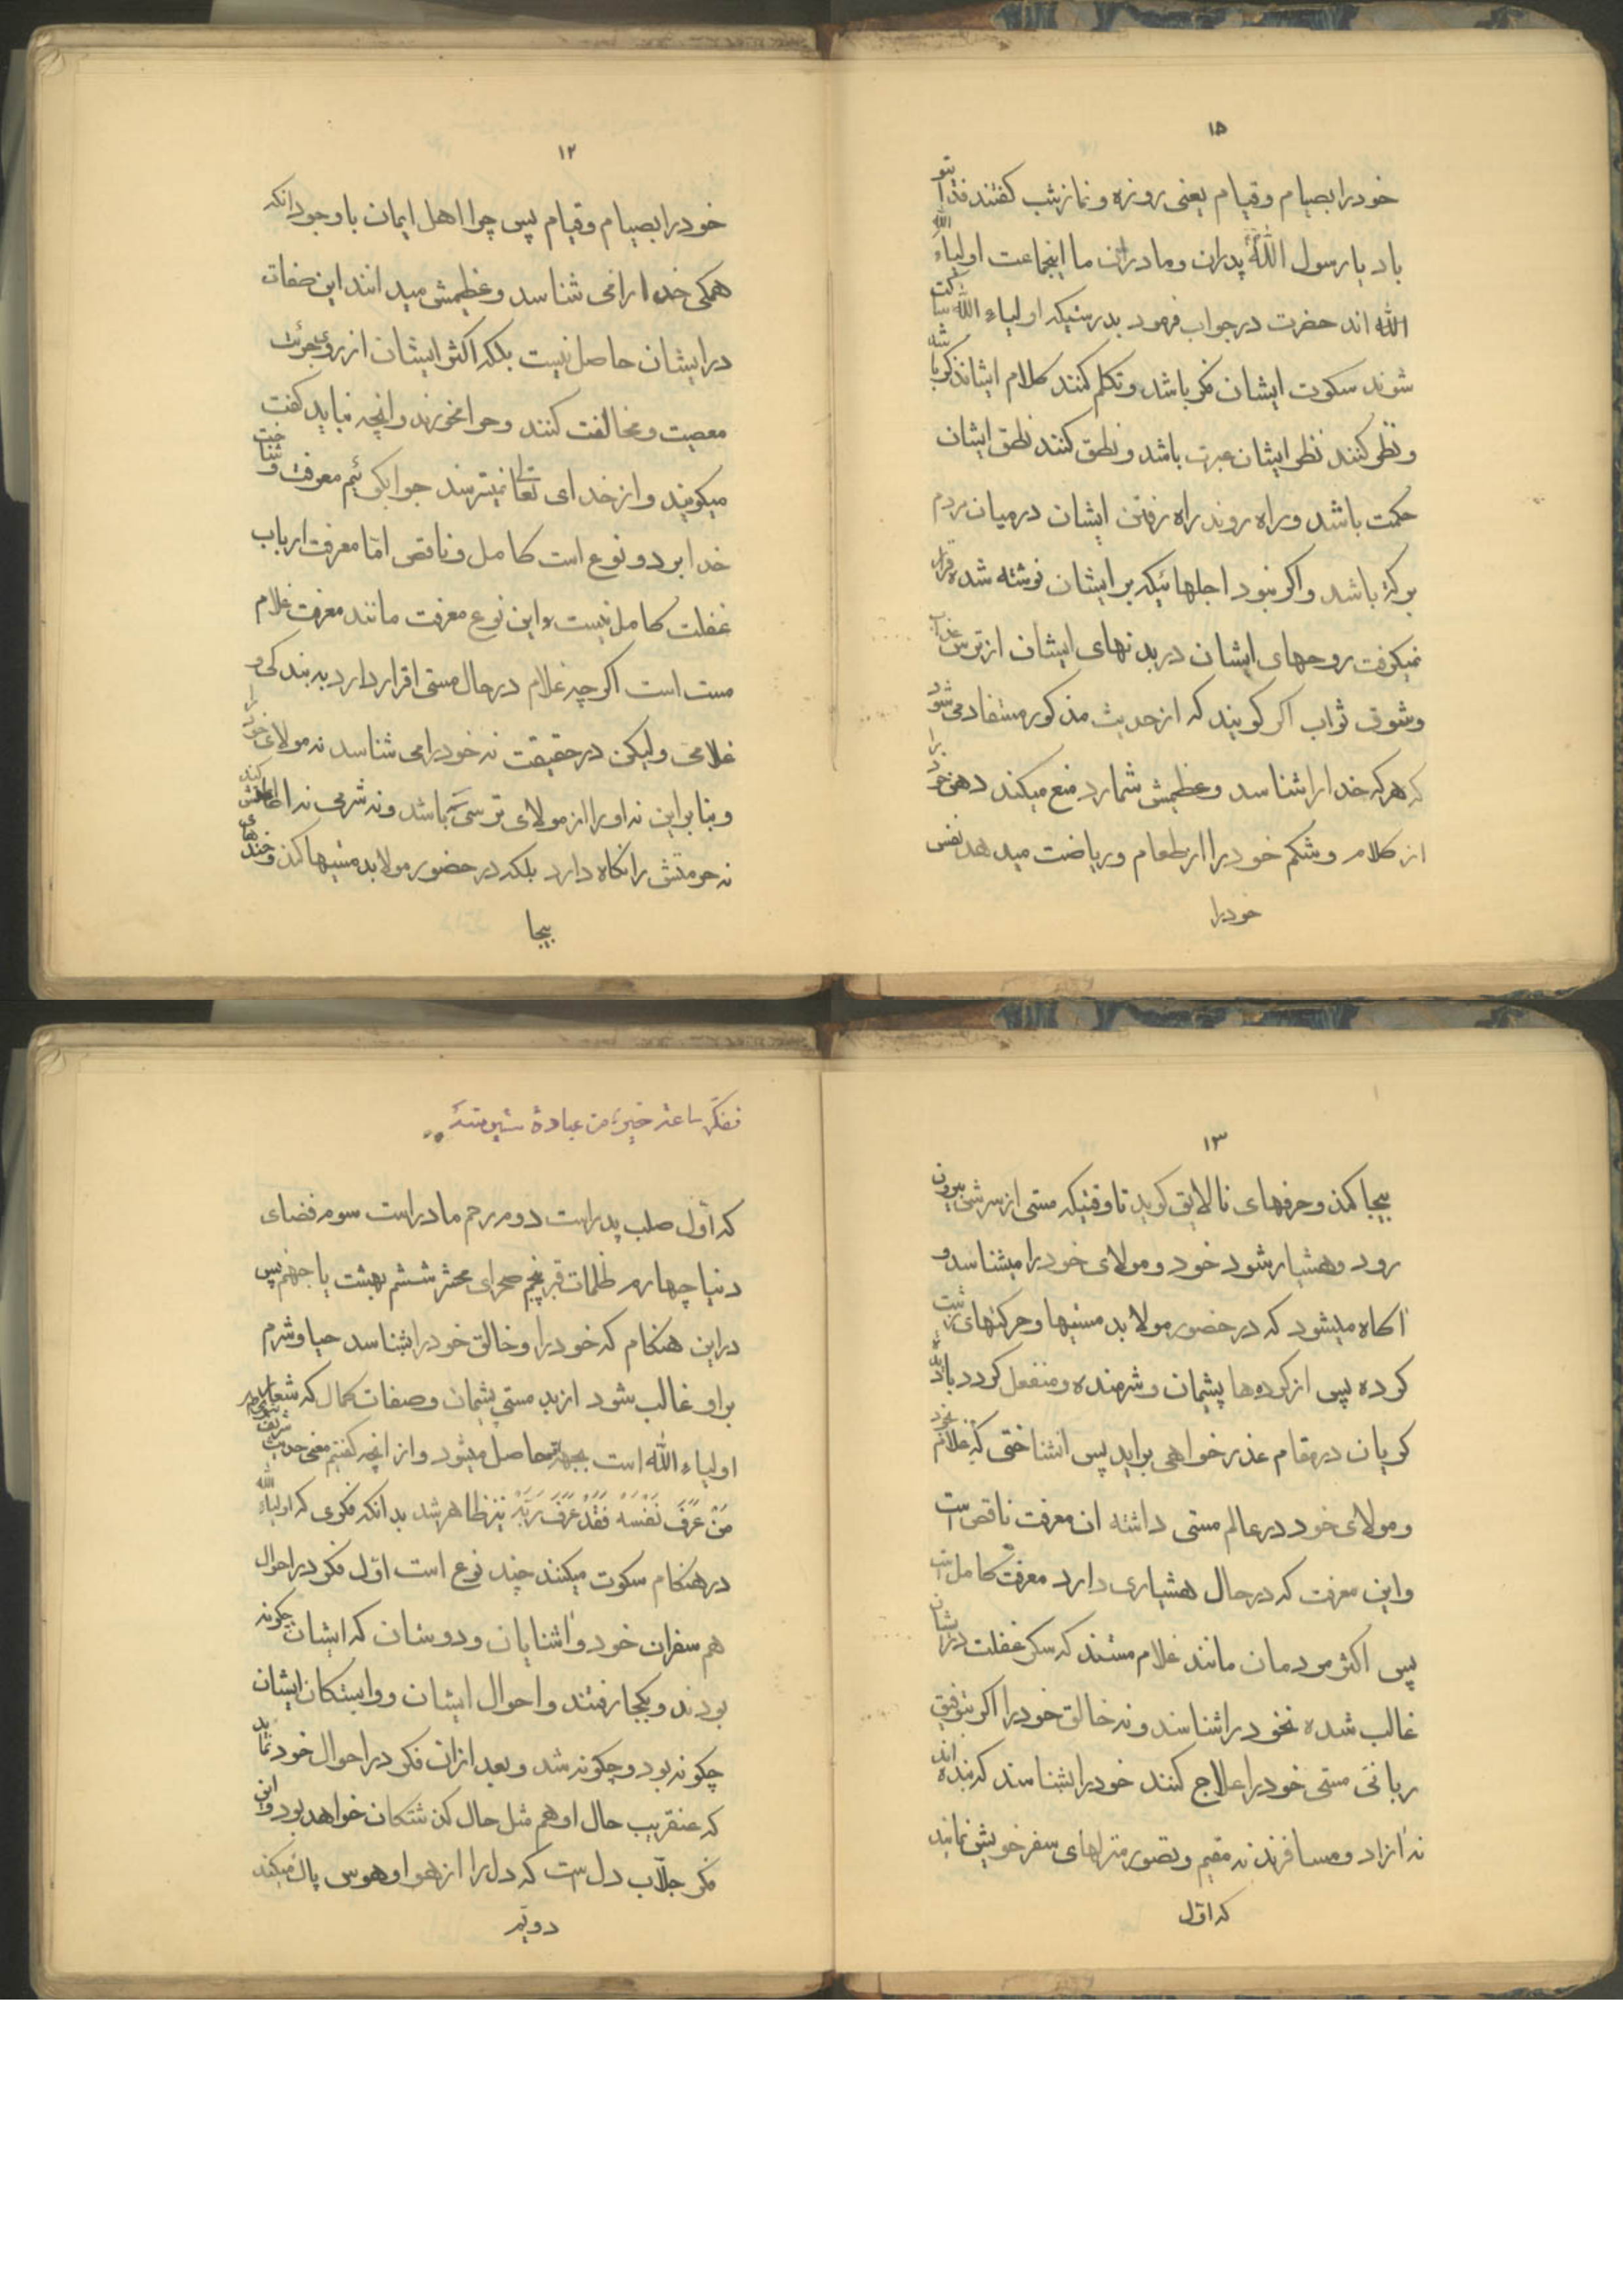 ۱۵
خودرا بصیام وقیام یعنی روزه ونماز شب کفتند فدایتو
باد یا رسول اللّه پدران ومادران ما اینجماعت اولیاء اللّه
اللّه اند حضرت درجواب فرمود بدرستیکه اولیاء اللّه ساکت
شوند سکوت ایشان فکر باشد وتکلم کنند کلام ایشان ذکر باشد
ونظر کنند نظر ایشان عبرت باشد ونطق کنند نطق ایشان
حکمت باشد وراه روند راه رفتن ایشان درمیان مردم
برکة باشد واکر نبود اجلهائیکه برایشان نوشته شده قرار
نمیکرفت روحهای ایشان دربدنهای ایشان ازترس عذاب
وشوق ثواب اکر کویند که ازحدیث مذکور مستفاد می شود
که هرکه خدارا شناسد وعظیمش شمارد منع میکند دهن خودرا
از کلام وشکم خودرا ازطعام وریاضت میدهد نفس
خودرا
۱۲
خودرا بصیام وقیام پس چرا اهل ایمان باوجود انکه
همکی خدارا می شناسد وعظیمش میدانند این صفات
درایشان حاصل نیست بلکه اکثر ایشان ازروی جرئت
معصیت ومخالفت کنند وحرامخورند وانچه نباید کفت
میکویند وازخدای تعالی نمیترسند جواب کوئیم معرفت وشناخت
خدا بردو نوع است کامل وناقص امّا معرفت ارباب
غفلت کامل نیست واین نوع معرفت مانند معرفت غلام
مست است اکرچه غلام درحال مستی اقرار دارد به بندکی و
غلامی ولیکن درحقیقت نه خودرا می شناسد نه مولای خودرا
وبنابراین نه اورا ازمولای ترسی باشد ونه شرمی نه اطاعتش کند
نه حرمتش را نکاه دارد بلکه درحضور مولا بدمستیها کند وخندهای
بیجا
۱۳
بیجا کند وحرفهای نالایق کوید تاوقتیکه مستی ازسرش بیرون
رود وهشیار شود خود ومولای خودرا میشناسد و
اکاه میشود که درحضور مولا بدمستیها وحرکتهای زشت
کرده پس ازکردها پشیمان وشرمنده ومنفعل کردد بادیده
کریان درمقام عذرخواهی براید پس انشناختی که غلام بخود
ومولای خود درعالم مستی داشته ان معرفت ناقص است
واین معرفت که درحال هشیاری دارد معرفت کامل است
پس اکثر مردمان مانند غلام مستند که سکر غفلت درایشان
غالب شده نخودرا شناسند ونه خالق خودرا اکر بتوفیق
ربانی مستی خودرا علاج کنند خودرا بشناسند که بنده اند
نه ازاد ومسافرند نه مقیم وتصور منزلهای سفر خویش نمایند
که اوّل
تفکّر ساعة خیر من عبادة ستین سنة
که اوّل صلب پدراست دوم رحم مادراست سوم فضای
دنیا چهارم ظلمات قبر پنجم صحرای محشر ششم بهشت یا جهنم پس
دراین هنکام که خودرا وخالق خودرا بشناسد حیا وشرم
براو غالب شود ازبد مستی پشیمان وصفات کمال که شعار
اولیاء اللّه است بجهة حاصل میشود وازانچه کفتیم معنی حدیث شریف
مَنْ عَرَفَ نَفْسَهُ فَقَدْ عَرَفَ رَبَّهُ نیز ظاهر شد بدانکه فکری که اولیاء اللّه
درهنکام سکوت میکنند چند نوع است اوّل فکر دراحوال
هم سفران خود واشنایان ودوستان که ایشان چکونه
بودند وبکجا رفتند واحوال ایشان ووابستکان ایشان
چکونه بود وچکونه شد وبعد ازان فکر دراحوال خود نماید
که عنقریب حال اوهم مثل حال کذشتکان خواهد بود واین
فکر جلّاب دل است که دل را ازهوا وهوس پاک میکند
دویّم